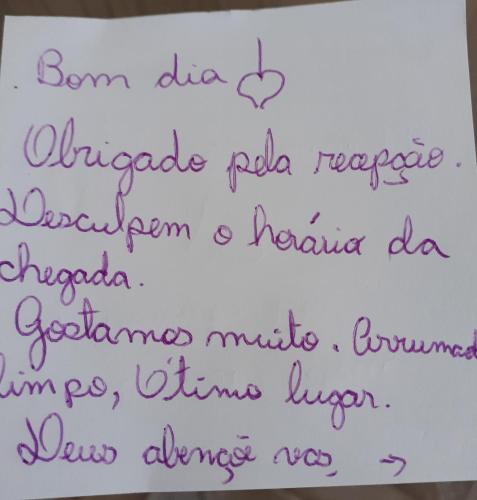 Bom dia
Obrigado pela recepção.
Desculpem o horária da
chegada.
Gostamos muito. Arrumad
limpo, Ótimo lugar.
Deus abençõe vos, →